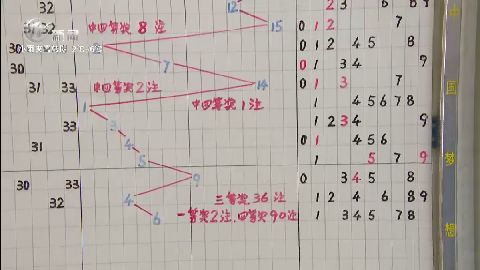 12 2 3 7 8
32 中四等奖 8 注 15 0 1 2 7
31 32 0 1 2 4 5 8
30 7 0 1 3 4 9
31 33 中四等奖 2 注 14 0 1 3 7
1 中四等奖 1 注 1 4 5 6 7 8
33 3 1 2 3 4 9
30 4 0 1 4 5 6
5 1 5 7 9
30 33 9 0 3 4 5 8
32 4 三等奖 36 注 1 2 4 6 8 9
6 一等奖 2 注. 四等奖 90 注 1 3 4 5 7 8
中
国
梦
想